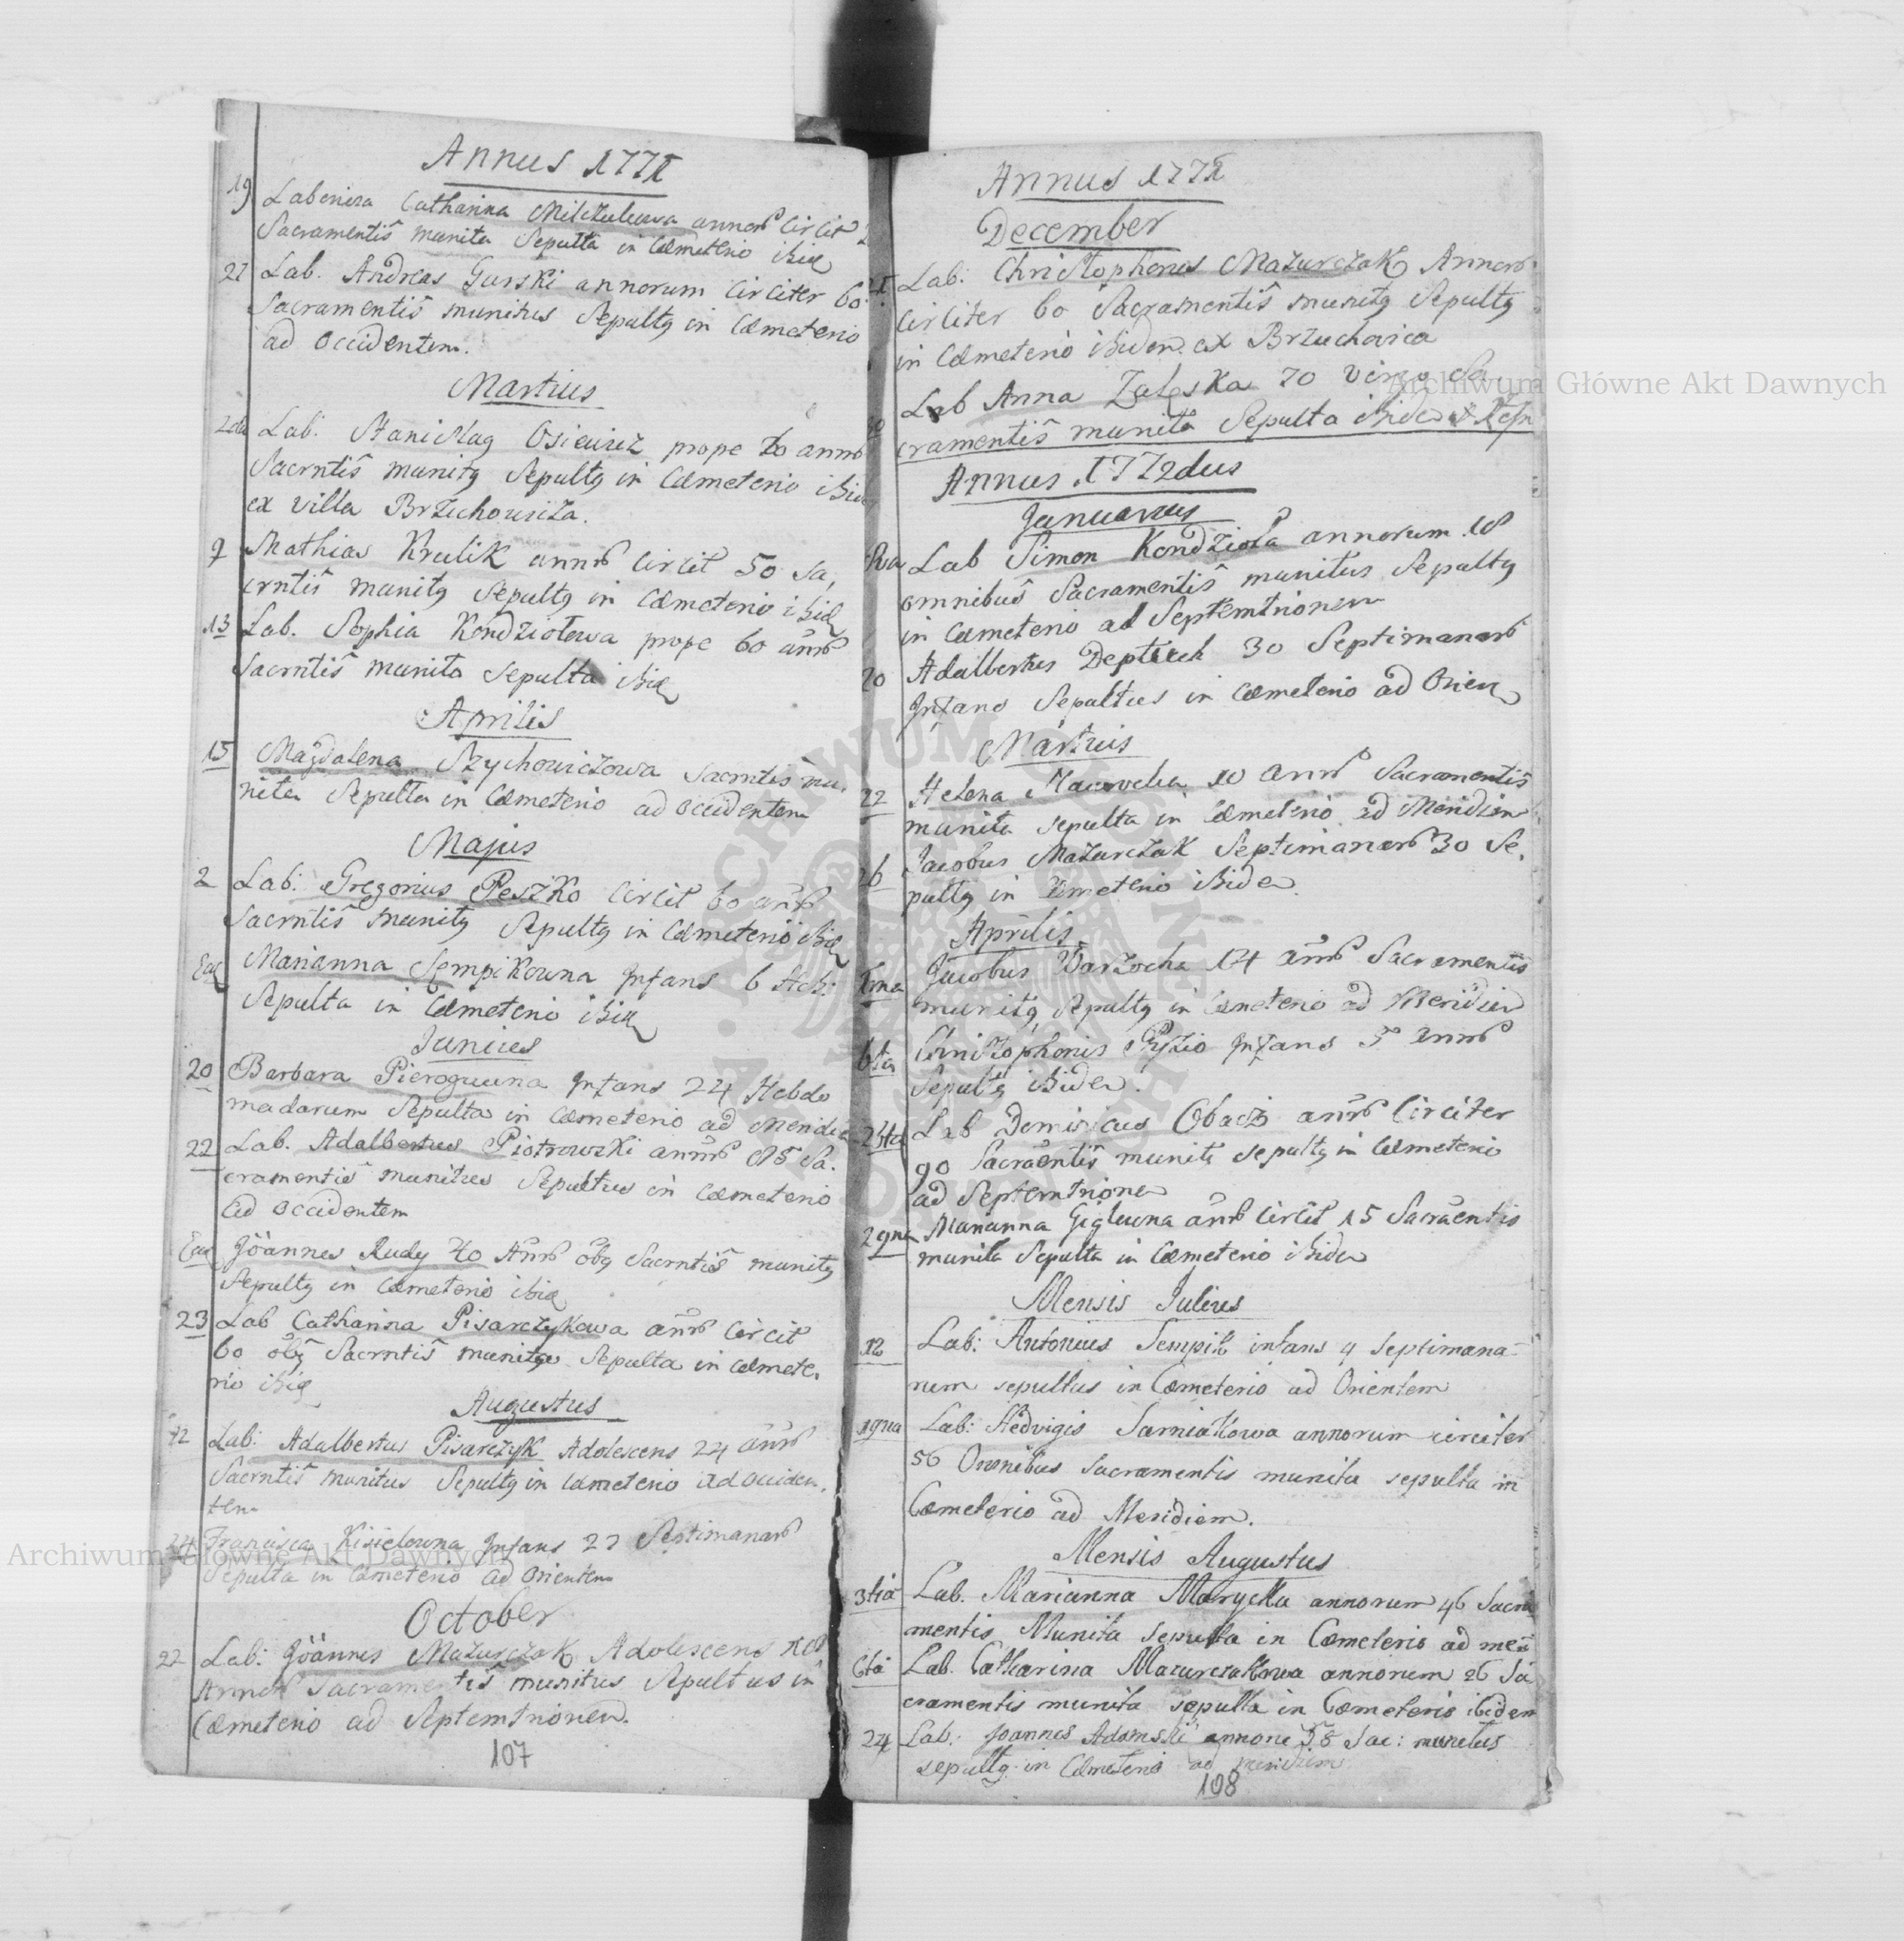 Annus 1771
19 Laboriosa Catharina Milczukowa annor Circit
Sacramentis munita Sepulta in Cæmeterio ibid
27 Lab. Andreas Gurski annorum Circiter 60
Sacramentis munitus Sepultq in Cæmeterio
ad Occidentem.
Martius
2da Lab: Stanislaq Osiewicz prope annor
Sacrntis munitq Sepultq in Cæmeterio ibid
ex villa Brzuchowiza.
9 Mathias Krulik annor Circit 50 Sa,
crntis munitq Sepultq in Cæmeterio ibid
13 Lab. Sophia Kondziołowa prope 60 annor
Sacrntis munita Sepulta ibid
Aprilis
15 Magdalena Szychowiczowa Sacrntis mu,
nita Sepulta in Cæmeterio ad Occidentem
Majus
2 Lab: Gregorius Peszko Circit 60 annor
Sacrntis munitq Sepultq in Cæmeterio ibid
Ead Marianna Sempikowna Infans 6 Heb:
Sepulta in Cæmeterio ibid
Junius
20 Barbara Pierogowna Infans 24 Hebdo
madarum Sepulta in Cæmeterio ad Meridie
22 Lab. Adalbertus Piotrowski annor 85 Sa.
cramentis munitus Sepultus in Cæmeterio
ad Occidentem
Ead Joannes Rudy 40 Annor obq Sacrntis munitq
Sepultq in Cæmeterio ibid
23 Lab Catharina Pisarczykowa annor Circit
60 Sacrntis munita Sepulta in Cæmete.
rio ibid
Augustus
12 Lab: Adalbertus Pisarczyk Adolescens 24 annor
Sacrntis munitus Sepultq in Cæmeterio ad Occiden,
tem
24 Francisca Kisielowna Infans 27 Septimanar
Sepulta in Cæmeterio ad Orientem
October
22 Lab: Joannes Mazurczak Adolescens 18
Annor Sacramentis munitus Sepultus in
Cæmeterio ad Septemtrionem.
107
Annus 1771
December
Lab: Christophorus Mazurczak Annor
Circiter 60 Sacramentis munitq Sepultq
in Cæmeterio ibidem ex Brzuchowica
30 Lab Anna Zaleska 70 Virgo Sa
cramentis munita Sepulta ibidem
Annus 1772dus
Januarius
Lab Simon Kondzioła annorum 18
omnibus Sacramentis munitus Sepultq
in Cæmeterio ad Septemtrionem
20 Adalbertus Deptuch 30 Septimanar
Infans Sepultus in Cæmeterio ad Orien
Martius
22 Helena 10 Annor Sacramentis
munita sepulta in Cæmeterio ad Meridiem
26 Jacobus Mazurczak Septimanar 30 Se,
pultq in Cæmeterio ibidem.
Aprilis
Jacobus Warzocha 14 annor Sacramentis
munitq Sepultq in Cæmeterio ad Meridiem
6ta Christophorus Pyzio Infans 5 annor
Sepultq ibidem.
Lab Obacz annor Circiter
90 Sacraentis munitq sepultq in Cæmeterio
ad Septemtrionem
29na Marianna Giglewna annor Circit 15 Sacraentis
munita Sepulta in Cæmeterio ibidem
Mensis Julius
12 Lab: Antonius Sempik infans 4 septimana-
rum sepultus in Cæmeterio ad Orientem
19na Lab: Hedvigis Sarniakowa annorum circiter
56 Omnibus Sacramentis munita sepulta in
Cæmeterio ad Meridiem.
Mensis Augustus
3tia Lab. Marianna Marycka annorum 46 Sacra
mentis Munita sepulta in Cæmeterio ad meri
6ta Lab. Catharina Mazurczakowa annorum 26 Sa
cramentis munita sepulta in Cæmeterio ibidem
24 Lab: Joannes Adamski annorum 58 Sac: munitus
sepultq in Cæmeterio ad meridiem
108
Archiwum Główne Akt Dawnych
Archiwum Główne Akt Dawnych